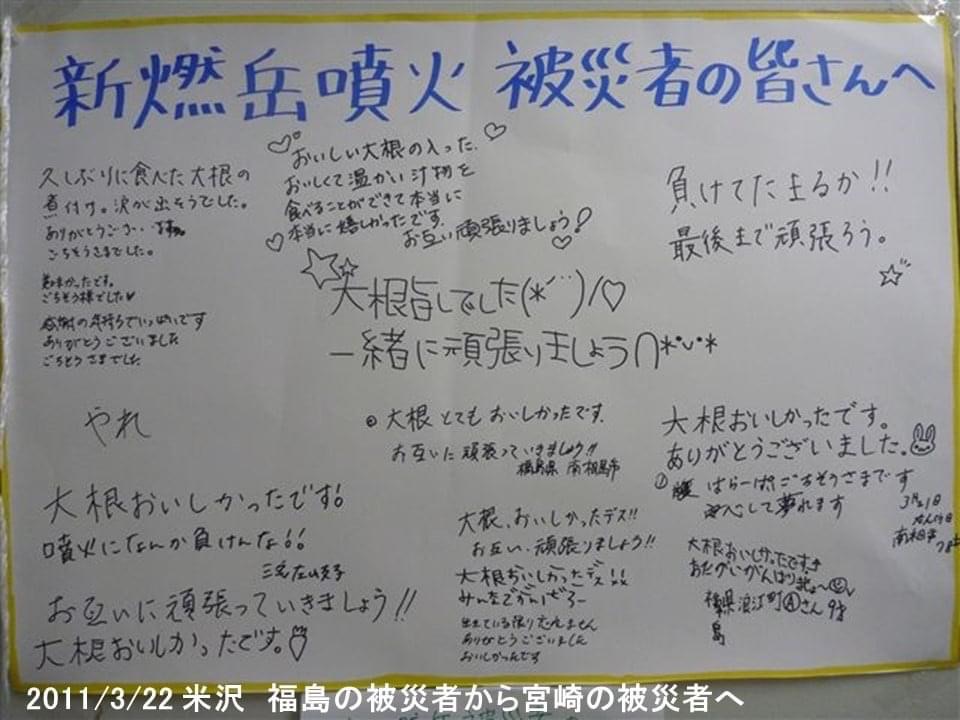 新燃岳噴火 被災者の皆さんへ
久しぶりに食べた大根の
煮付け。涙が出そうでした。
ありがとうござい
ごちそうさまでした。
美味かったです。
ごちそう様でした♥
感謝の気持ちでいっぱいです
ありがとうございました
ごちそうさまでした
おいしい大根の入った、
おいしくて温かい汁物を
食べることができて本当に
本当に嬉しかったです。
お互い頑張りましょう!
負けてたまるか!!
最後まで頑張ろう。
大根旨しでした(*´¨`)ノ♡
一緒に頑張りましょう∩*˙ᴗ˙*
やれ
大根とてもおいしかったです。
お互いに頑張っていきましょう!!
福島県 南相馬市
大根おいしかったです。
ありがとうございました。
はらーぱいごちそうさまです
して夢れます
3月21日
南相馬
大根おいしかったです!
噴火になんか負けんな!!
お互いに頑張っていきましょう!!
大根おいしかったです。
大根、おいしかったデス!!
お互い、頑張りましょう!!
大根おいしかったデス!!
みんなでがんばろー
生きている限り忘れません
ありがとうございました
おいしかったです
大根おいしかったです
おたがいがんばりましょ〜
福島県浪江町Ⓐさん 9才
2011/3/22 米沢 福島の被災者から宮崎の被災者へ